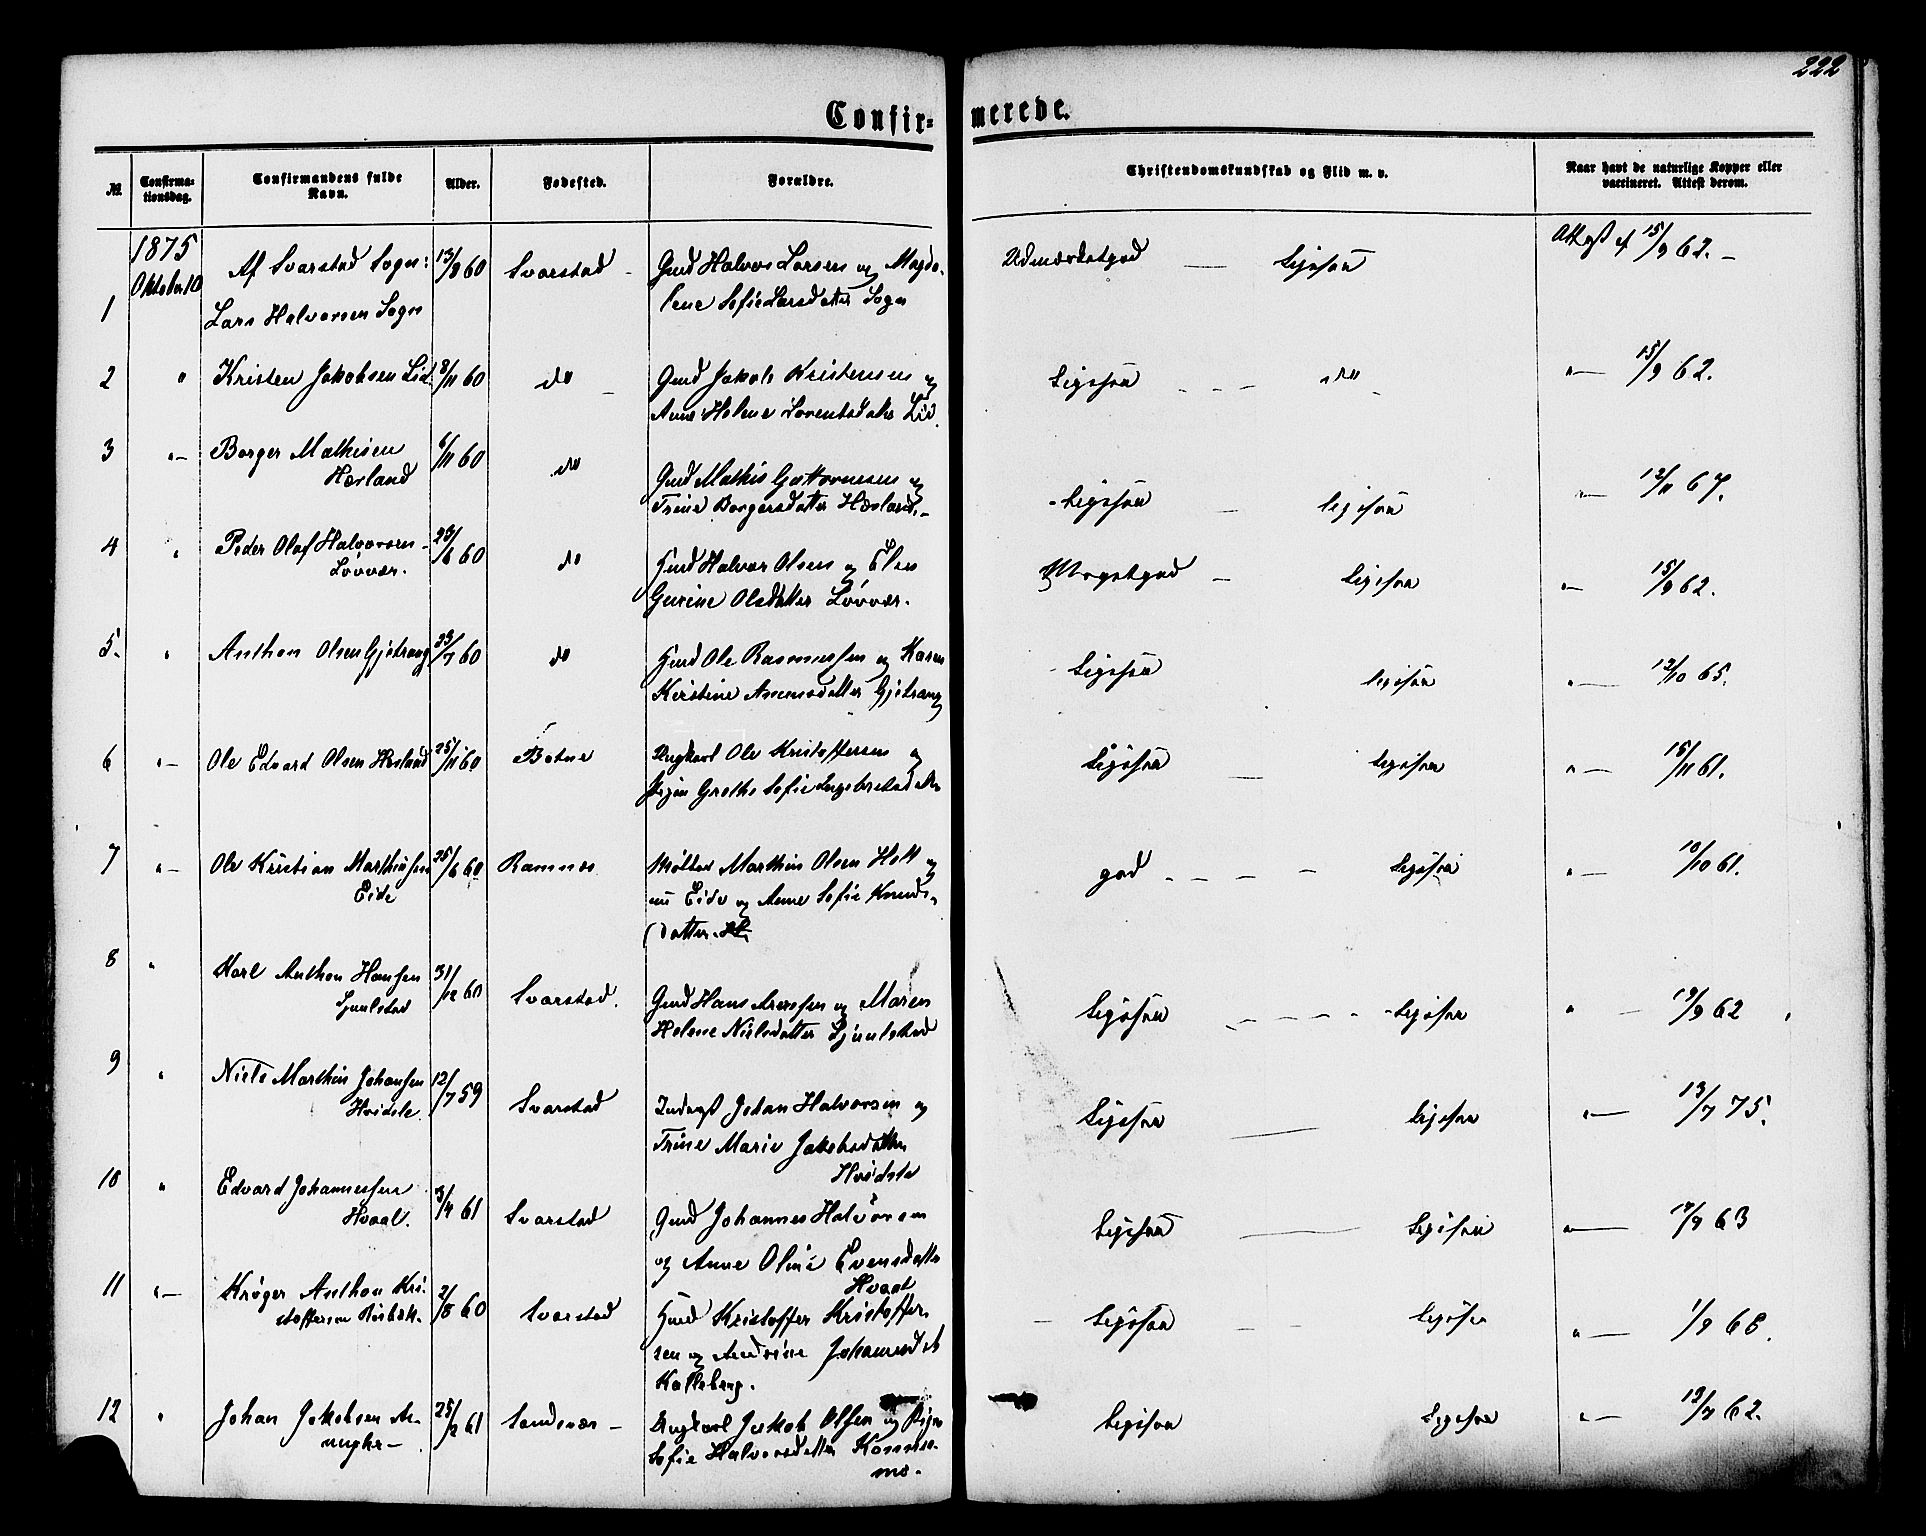 222
Confir- merede.
№ Confirma-tionsdag. Confirmandens fulde Navn. Alder. Fødested. Forældre. Christendomskundskab og Flid m. v. Naar havt de naturlige Kopper eller vaccineret. Attest derom.
1875 Oktober 10
Af Svarstad Sogn:
1 Lars Halvorsen Sogn 13/8 60 Svarstad Gmd Halvor Larsen og Magda-
lene Sofie Larsdatter Sogn Udmærketgod — Ligesaa Attest 15/9 62.
2 " Kristen Jakobsen Lid 8/11 60 do Gmd Jakob Kristensen og
Anne Helene Lorentsdatter Lid. Ligesaa do " 15/9 62.
3 " Borger Mathisen
Hærland 6/11 60 do Gmd Mathis Guttormsen og
Trine Borgersdatter Hærland. Ligesaa — ligesaa " 12/11 67.
4 " Peder Olaf Halvorsen
Løvvær. 23/6 60 do Gmd Halvor Olsen og Elen
Gurine Olsdatter Løvvær. Megetgod — Ligesaa " 15/9 62.
5. " Anthon Olsen Gjetrang 23/7 60 do Gmd Ole Rasmussen og Karen
Kirstine Amunsdatter Gjetrang Ligesaa ligesaa " 12/10 65.
6 " Ole Edvard Olsen Hærland 25/11 60 Botne Ungkarl Ole Kristoffersen og
Pigen Grethe Sofie Ingebretsdatter Ligesaa — Ligesaa " 15/11 61.
7 " Ole Kristian Marthinsen
Eide 25/6 60 Ramnæs Møller Marthin Olsen Holt og
nu Eide og Anne Sofie Knuds-
datter. god Ligesaa " 10/10 61.
8 " Karl Anthon Hansen
Sjuulstad 31/12 60 Svarstad. Gmd Hans Arensen og Maren
Helene Nielsdatter Sjuulstad Ligesaa Ligesaa " 19/9 62
9 " Niels Marthin Johansen
Hvidsle 12/7 59 Svarstad Inderst Johan Halvorsen og
Trine Marie Jakobsdatter
Hvidsle Ligesaa — Ligesaa " 13/7 75.
10 " Edvard Johannessen
Hvaal. 3/4 61 Svarstad Gmd Johannes Halvorsen
og Anne Oline Evensdatter
Hvaal Ligesaa — Ligesaa " 63
11 " Krøger Anthon Kri-
stoffersen 2/8 60 Svarstad Gmd Kristoffer Kristoffer-
sen og Andrine Johannesdat
Kalleberg. Ligesaa Ligesaa " 1/9 68.
12 " Johan Jakobsen 25/2 61 Sandsvær — Ungkarl Jakob Olsen og Pigen
Sofie Halvorsdatter Komnæs-
mo. Ligesaa Ligesaa " 19/7 62.